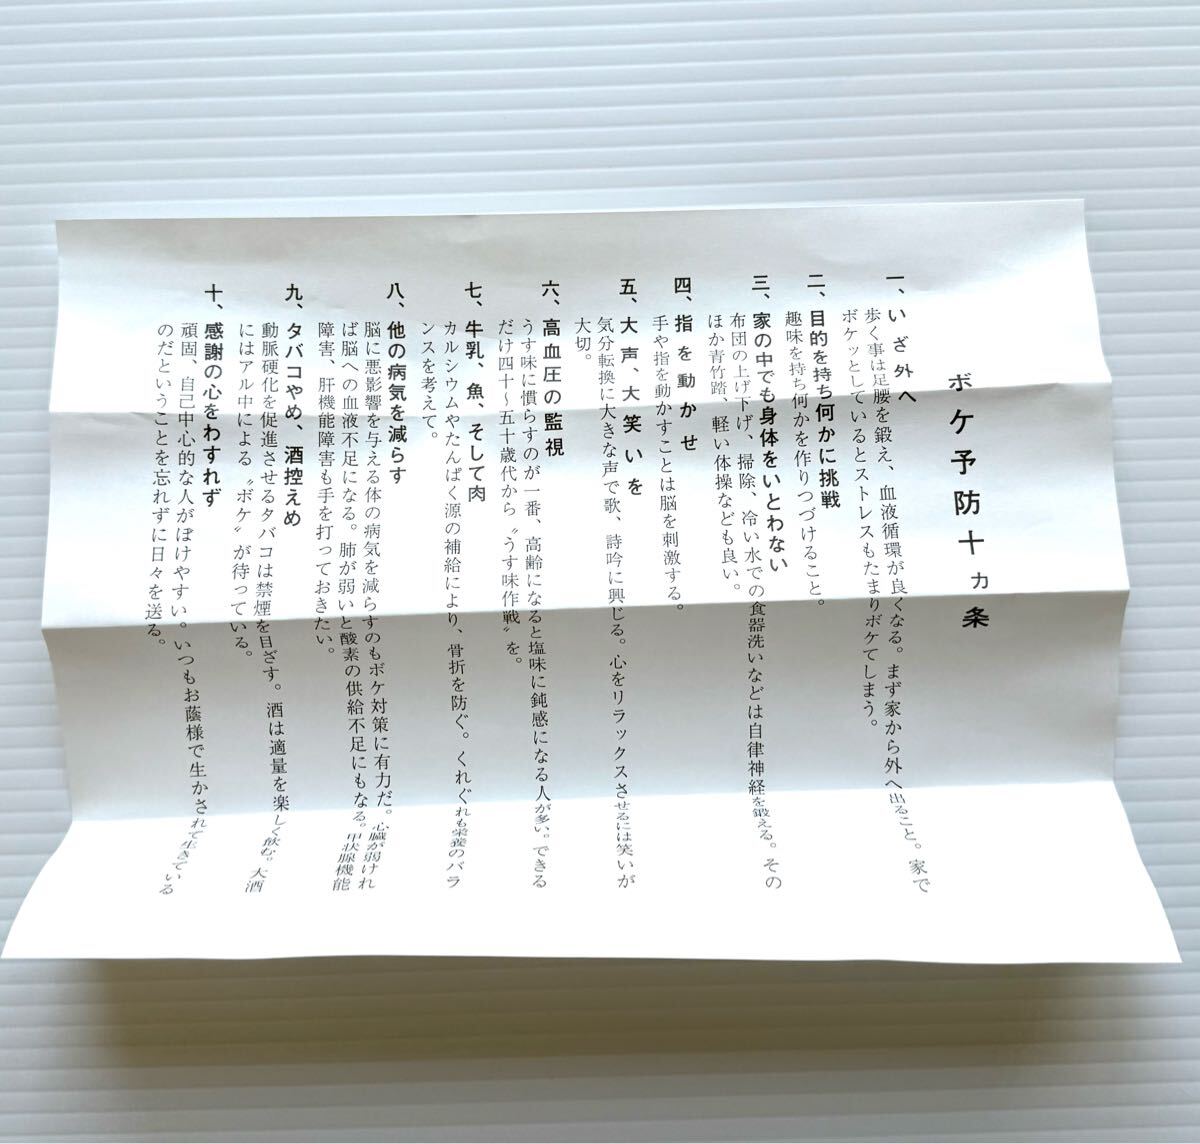 ボケ予防十カ条
一、いざ外へ
歩く事は足腰を鍛え、血液循環が良くなる。まず家から外へ出ること。家で
ボケッとしているとストレスもたまりボケてしまう。
二、目的を持ち何かに挑戦
趣味を持ち何かを作りつづけること。
三、家の中でも身体をいとわない
布団の上げ下げ、掃除、冷い水での食器洗いなどは自律神経を鍛える。その
ほか青竹踏、軽い体操なども良い。
四、指を動かせ
手や指を動かすことは脳を刺激する。
五、大声、大笑いを
気分転換に大きな声で歌、詩吟に興じる。心をリラックスさせるには笑いが
大切。
六、高血圧の監視
うす味に慣らすのが一番、高齢になると塩味に鈍感になる人が多い。できる
だけ四十～五十歳代から〝うす味作戦〟を。
七、牛乳、魚、そして肉
カルシウムやたんぱく源の補給により、骨折を防ぐ。くれぐれも栄養のバラ
ンスを考えて。
八、他の病気を減らす
脳に悪影響を与える体の病気を減らすのもボケ対策に有力だ。心臓が弱けれ
ば脳への血液不足になる。肺が弱いと酸素の供給不足にもなる。甲状腺機能
障害、肝機能障害も手を打っておきたい。
九、タバコやめ、酒控えめ
動脈硬化を促進させるタバコは禁煙を目ざす。酒は適量を楽しく飲む。大酒
にはアル中による〝ボケ〟が待っている。
十、感謝の心をわすれず
頑固、自己中心的な人がぼけやすい。いつもお蔭様で生かされて生きている
のだということを忘れずに日々を送る。